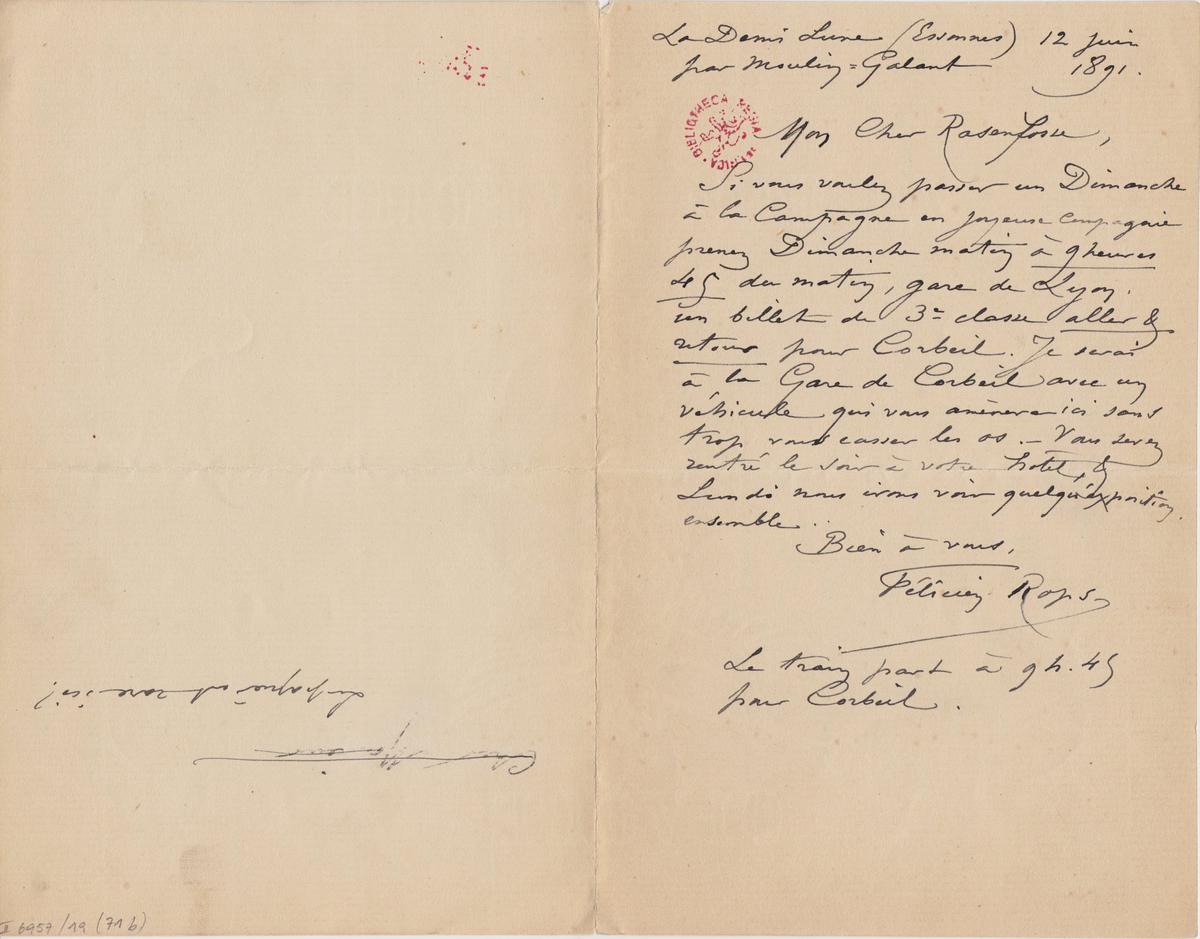 La Demi Lune (Essonnes) 12 juin
par Moulin=Galant 1891.
Mon Cher Rasenfosse,
Si vous voulez passer un Dimanche
à la Campagne en joyeuse compagnie
prenez Dimanche matin à 9 heures
45 du matin, gare de Lyon.
un billet de 3e classe aller &
retour pour Corbeil. Je serai
à la Gare de Corbeil avec un
véhicule qui vous amènera ici sans
trop vous casser les os. – Vous serez
rentré le soir à votre hotel, &
Lundi nous irons voir quelqu'exposition
ensemble..
Bien à vous,
Félicien Rops
Le train part à 9h. 45
pour Corbeil.
Le papier est rare ici!
Cher
II 6957/19 (71 b)
BIBLIOTHECA REGIA